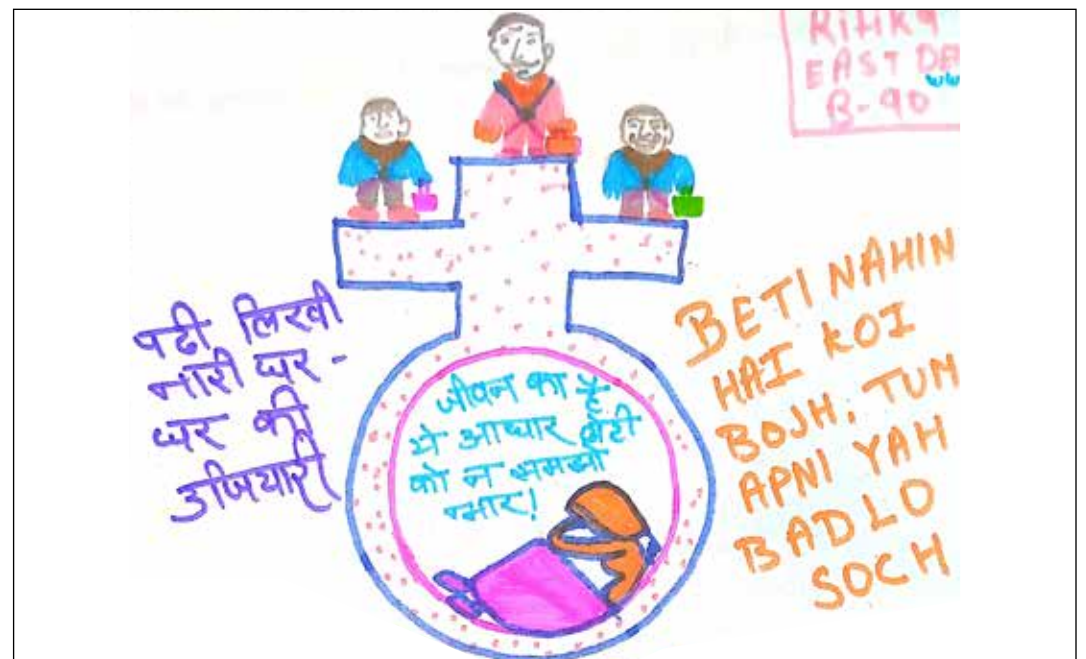 RITIKA
EAST DE
B-90
पढी लिखी
नारी घर -
घर की
उजियारी
जीवन का है
ये आधार बेटी
को न समझो
भार!
BETI NAHIN
HAI KOI
BOJH, TUM
APNI YAH
BADLO
SOCH